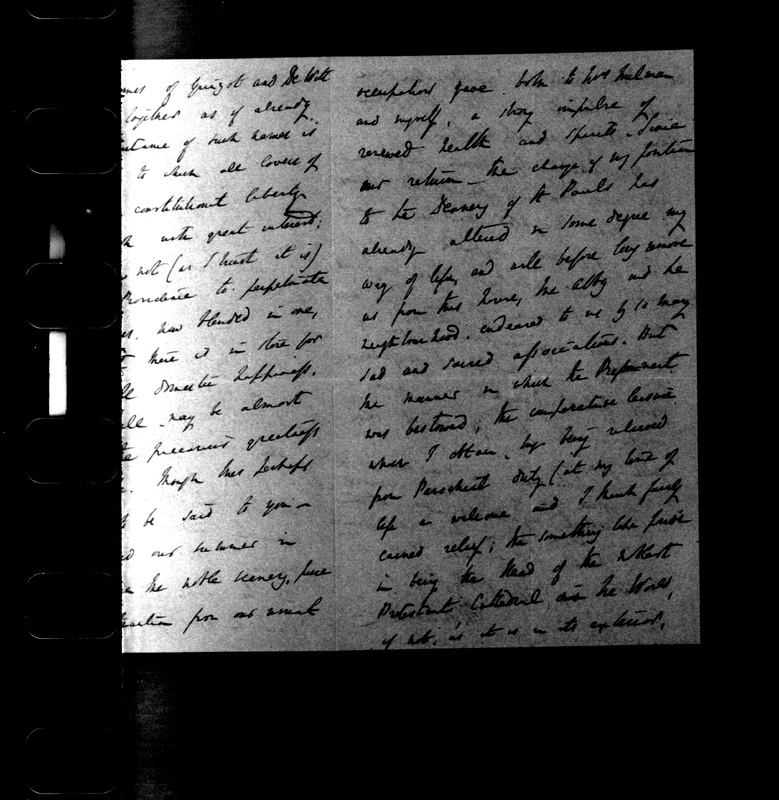 names of Guizot and De Witt
together as if already
of such names is
to which all lovers of
constitutional liberty
with great interest;
not (as I trust it is)
Providence to perpetuate
now blended in one,
there is in store for
domestic happiness.
may be almost
precarious greatness
Though this perhaps
be said to you —
our summer in
the noble scenery, pure
from our usual
occupations gave both to Mrs Milman
and myself, a strong impulse of
renewed health and spirits. Since
our return — the change of my position
to the Deanery of St Pauls has
already altered in some degree my
way of life, and will before long remove
us from this house, the Abbey and the
neighbourhood endeared to us by so many
sad and sacred associations. But
the manner in which the Preferment
was bestowed; the comparative leisure
which I obtain, by being released
from Parochial duty (at my time of
life a welcome and I think fairly
earned relief; the something like pride
in being the Head of the noblest
Protestant Cathedral in the World,
if not, as it is in its exterior,